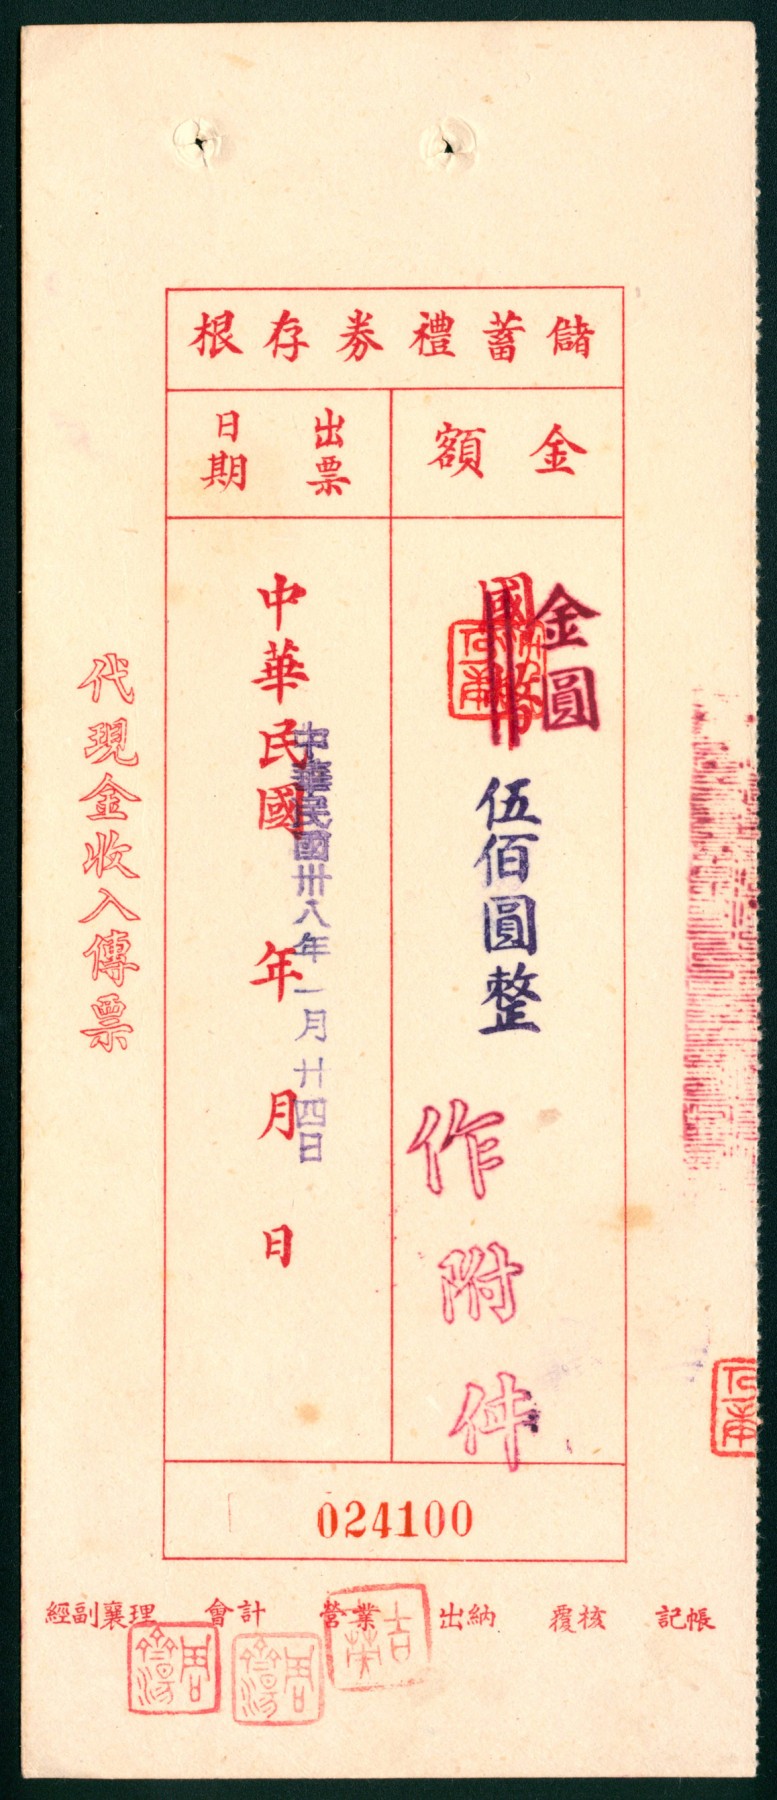 儲蓄禮券存根
金額
出票日期
金圓
國幣
伍佰圓整
作附件
中華民國 年 月 日
中華民國卅八年一月廿四日
代現金收入傳票
024100
記帳 覆核 出納 營業 會計 經副襄理